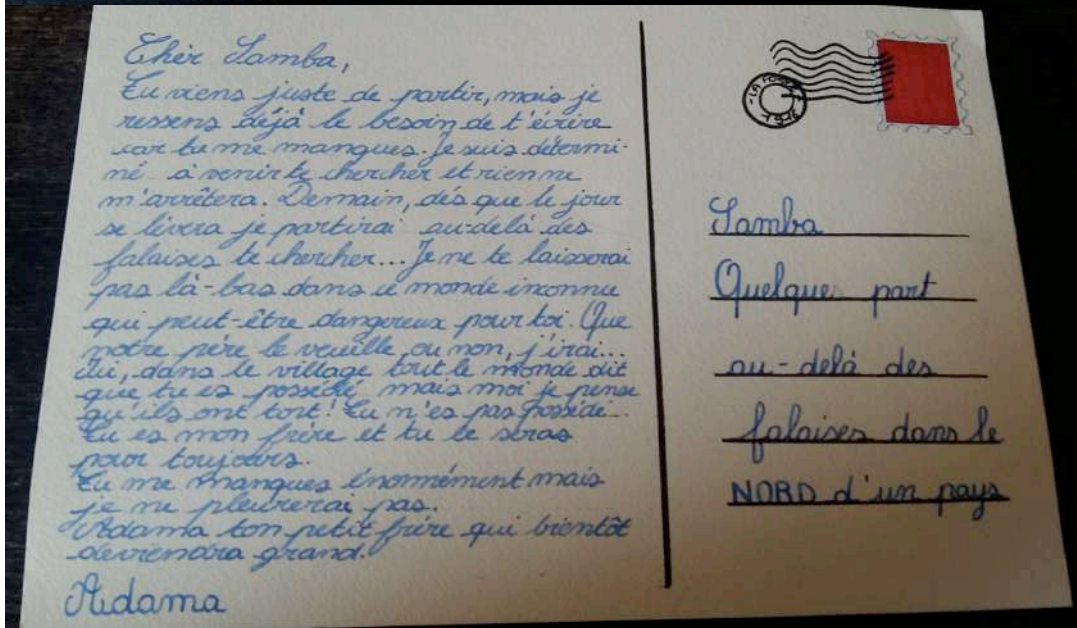 Cher Samba,
Tu viens juste de partir, mais je
ressens déjà le besoin de t'écrire
car tu me manques. Je suis détermi-
né à venir te chercher et rien ne
m'arrêtera. Demain, dés que le jour
se lèvera je partirai au-delà des
falaises te chercher... Je ne te laisserai
pas là-bas dans ce monde inconnu
qui peut-être dangereux pour toi. Que
notre père le veuille ou non, j'irai...
Ici, dans le village tout le monde dit
que tu es possédé, mais moi je pense
qu'ils ont tort! Tu n'es pas possédé...
Tu es mon frère et tu le seras
pour toujours.
Tu me manques énormément mais
je ne pleurerai pas.
Adama ton petit frère qui bientôt
deviendra grand.
Adama
Samba
Quelque part
au-delà des
falaises dans le
NORD d'un pays